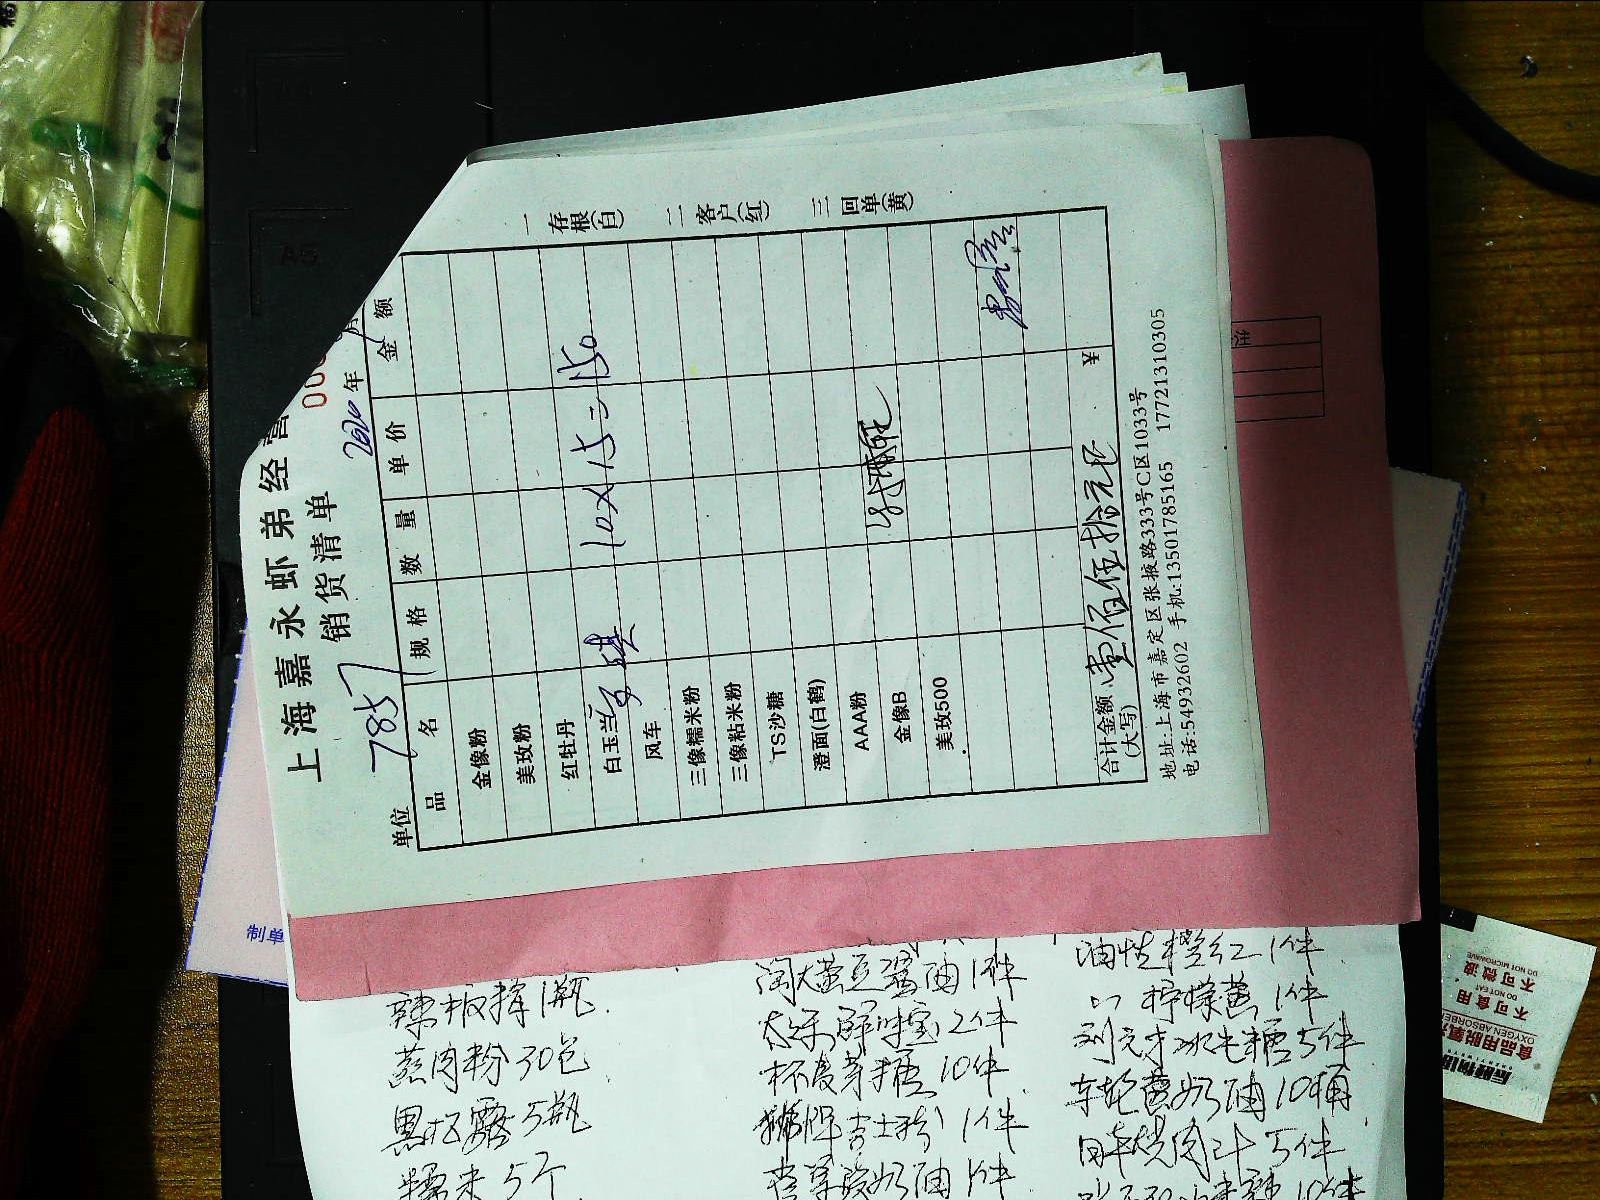 上海嘉永虾弟经营
销货清单
000
单位 7857
2020年 月
品名 规格 数量 单价 金额
金像粉
美玫粉
红牡丹
白玉兰 10×15=150
风车
三像糯米粉
三像粘米粉
TS沙糖
澄面(白鹤)
AAA粉
金像B
美玫500
合计金额(大写) 壹佰伍拾元正 ¥
地址:上海市嘉定区张掖路333号C区1033号
电话:54932602 手机:13501785165 17721310305
一存根(白) 二客户(红) 三回单(黄)
制单
蒸肉粉 30包
黑松露 5瓶
糯米 5个
淘大黄豆酱油 1件
太乐鲜味宝 2件
麦芽糖 10件
吉士粉 1件
奶油 1件
油性橙红 1件
柠檬黄 1件
冰片糖 5件
车轮黄奶油 10桶
日本烧肉汁 5件
10件
食品用脱氧剂
OXYGEN ABSORBER
不可食用
DO NOT EAT
不可微波
DO NOT MICROWAVE
A5